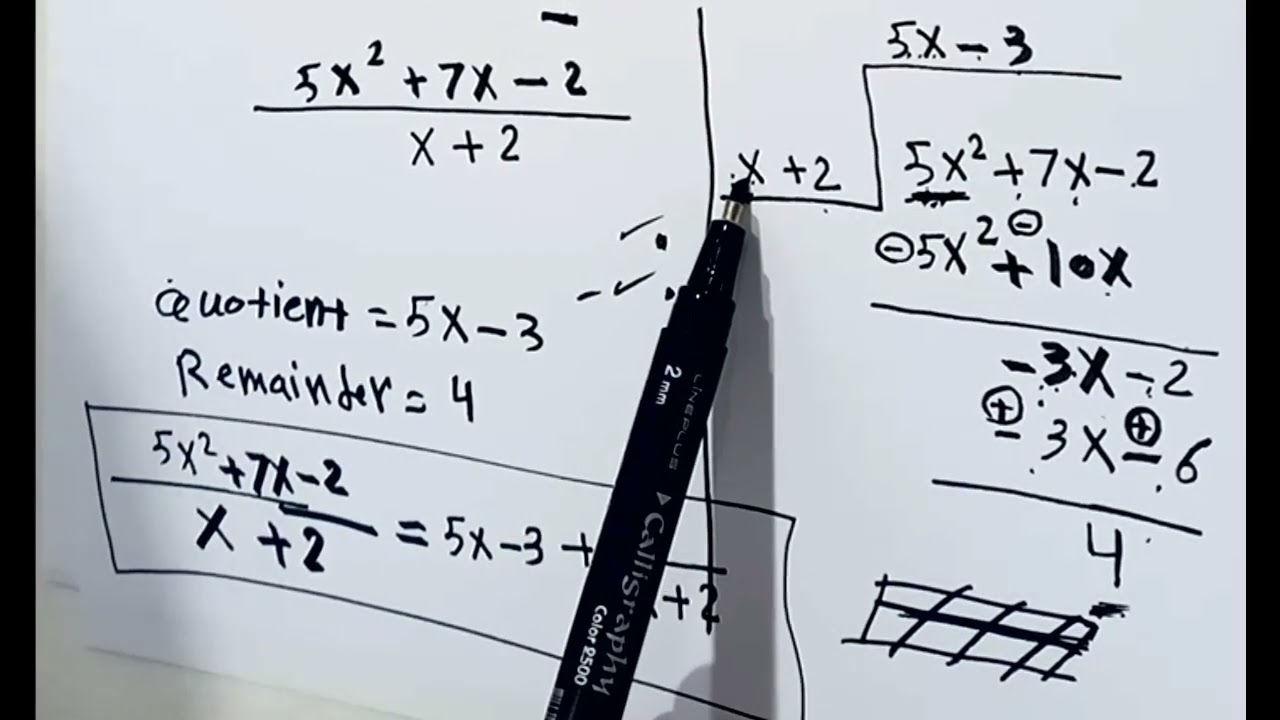 5x² + 7x - 2
x + 2
Quotient = 5x - 3
Remainder = 4
5x² + 7x - 2
x + 2 = 5x - 3 +
+ 2
5x - 3
x + 2
5x² + 7x - 2
⊖ 5x² ⊖ + 10x
- 3x - 2
⊕ - 3x ⊕ - 6
4
2 mm LINEPLUS Calligraphy
Color 2500